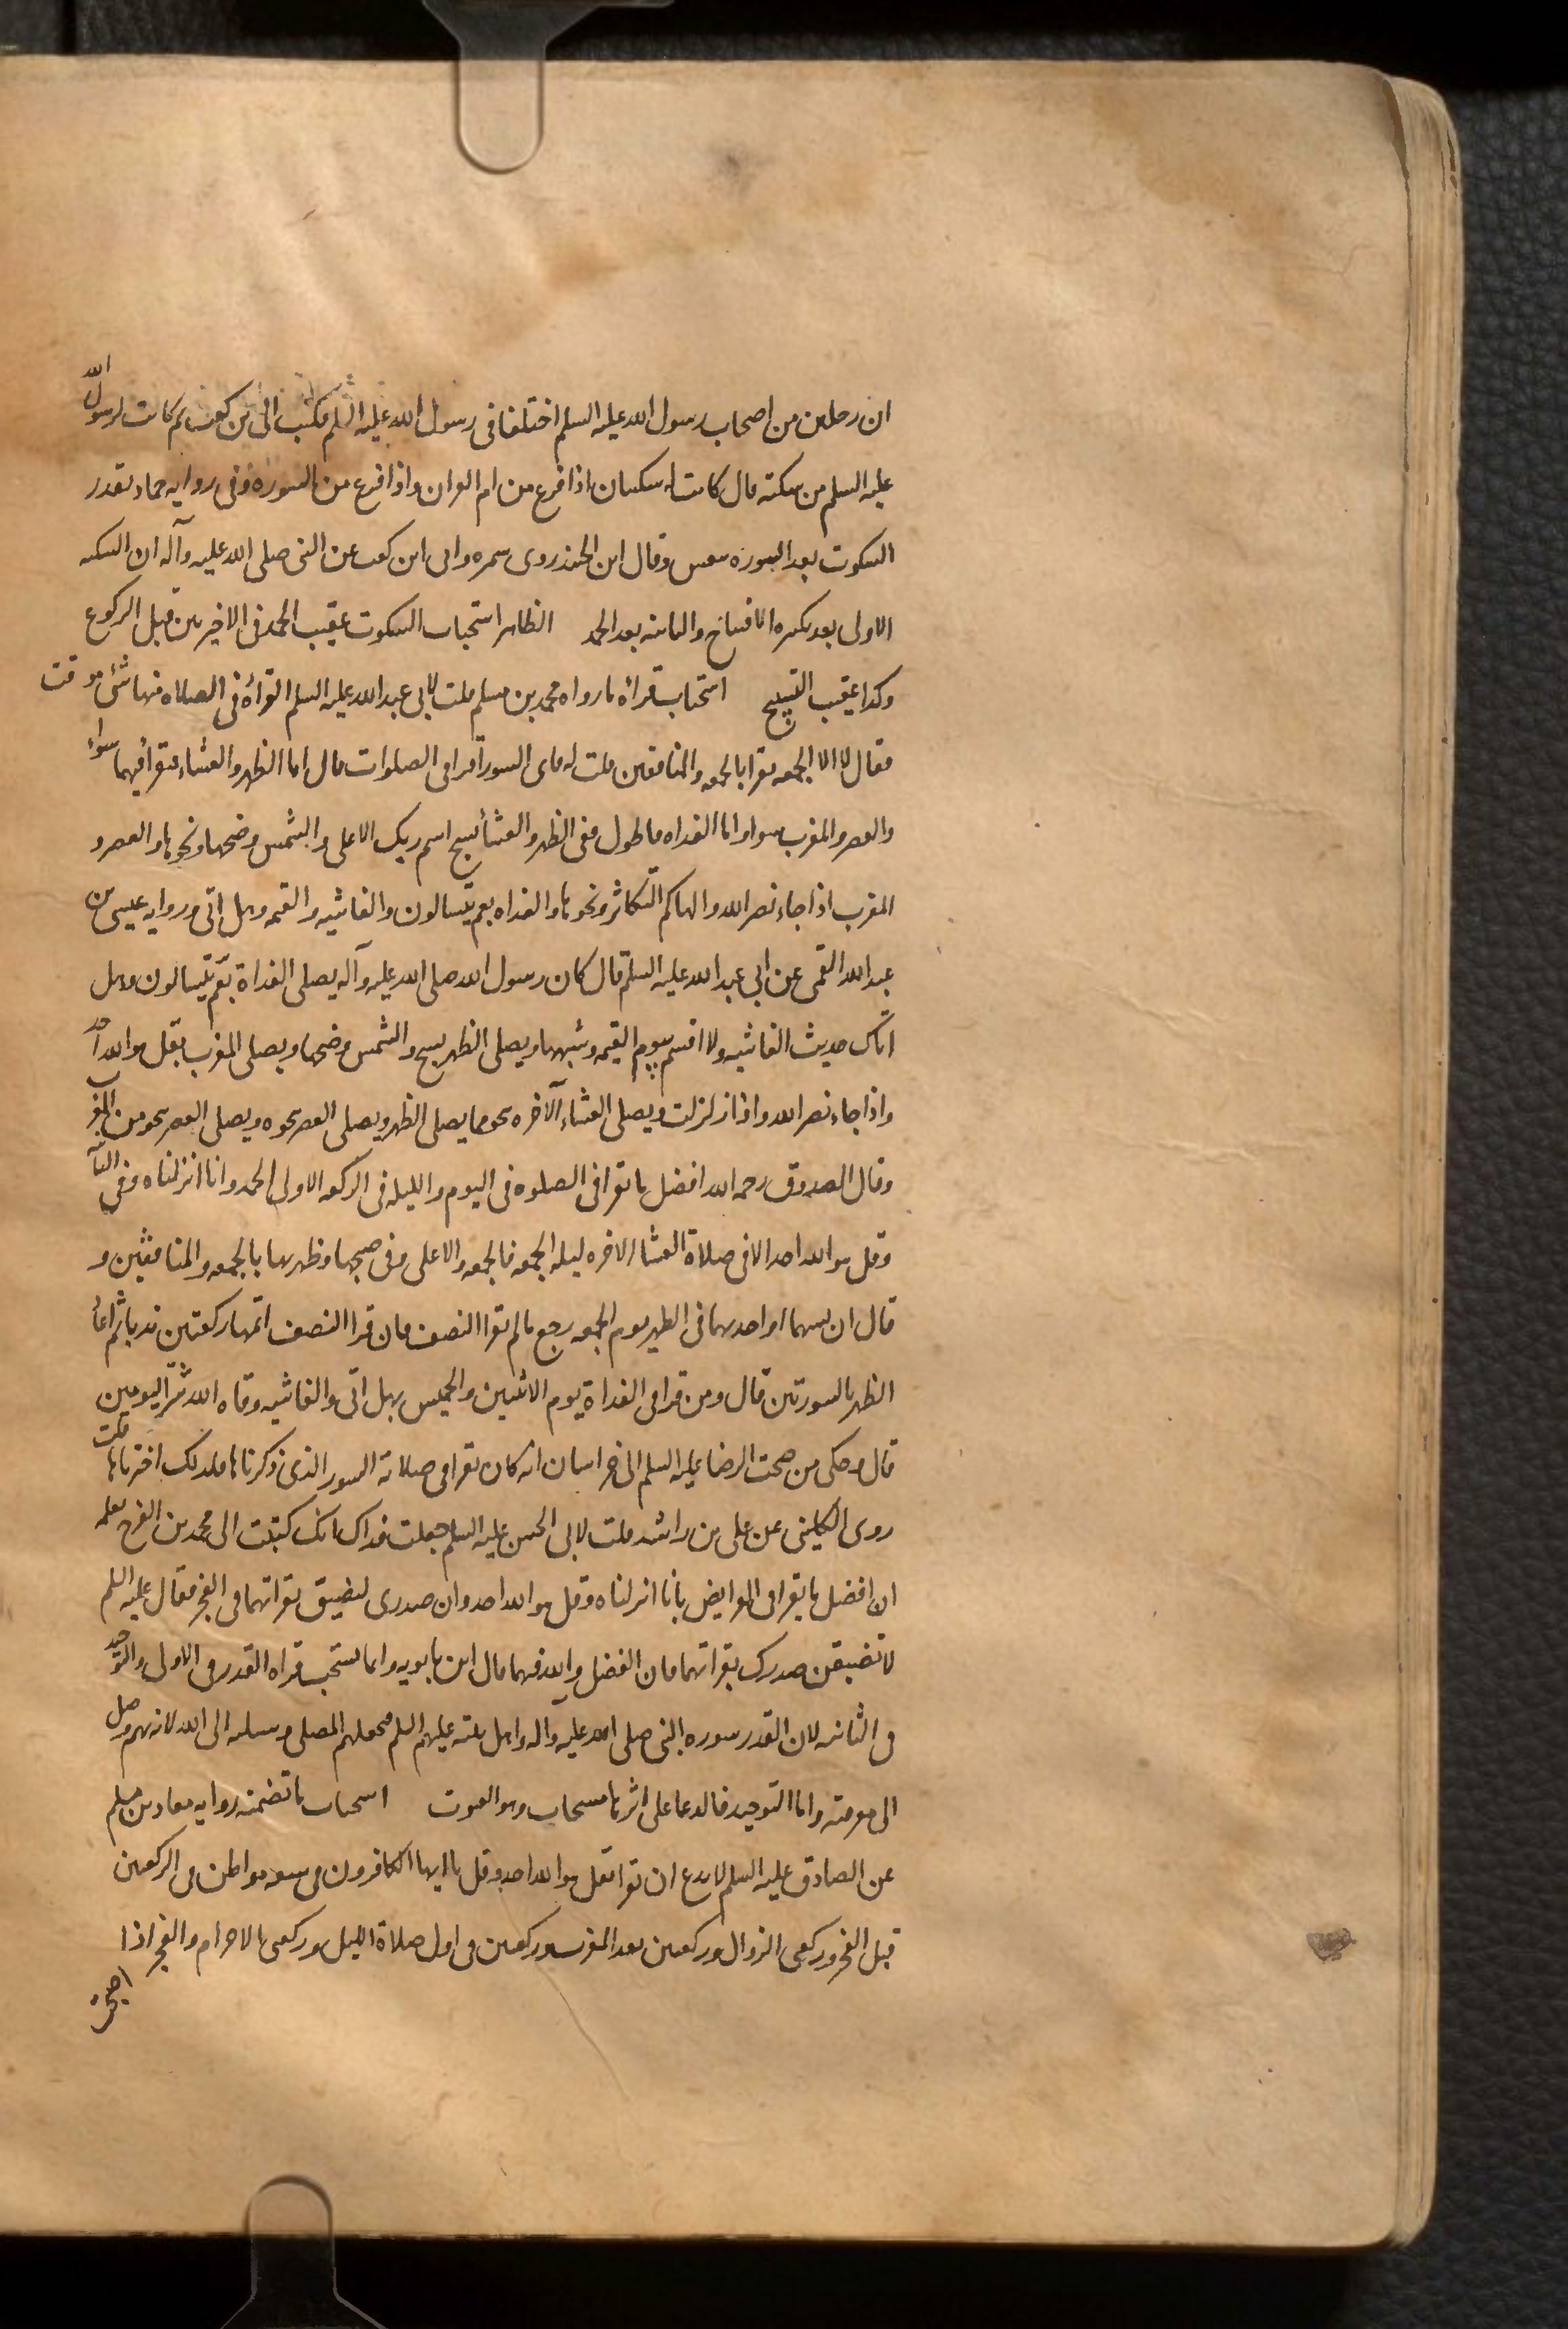 ان رجلين من اصحاب رسول الله عليه السلم اختلفا فى رسول الله عليه السلم فكتب الى بن كعب كم كانت لرسول الله
عليه السلم من سكته قال كانت له سكتتان اذا فرغ من ام القران واذا فرغ من السوره وفى روايه حماد تقدر
السكوت بعد السوره بنفس وقال ابن الجنيد روى سمره وابى ابن كعب عن النبى صلى الله عليه وآله ان السكته
الاولى بعد تكبيره الافتتاح والثانيه بعد الحمد الظاهر استحباب السكوت عقيب الحمد فى الاخيرتين قبل الركوع
وكذا عقيب التسبيح استحباب قرائة ما رواه محمد بن مسلم قلت لابى عبد الله عليه السلم القرأة فى الصلاه فيها شئ موقت
فقال لا الا الجمعه تقرا بالجمعه والمنافقين قلت له فاى السور تقرا فى الصلوات قال اما الظهر والعشاء فتقرأ فيهما سواء
والعصر والمغرب سوا واما الغداه فاطول ففى الظهر والعشأ سبح اسم ربك الاعلى والشمس وضحها ونحوها والعصر و
المغرب اذا جاء نصر الله والهاكم التكاثر ونحوها والغداه بعم يتسالون والغاشيه والقيمه وهل اتى وروايه عيسى بن
عبد الله القمى عن ابى عبد الله عليه السلم قال كان رسول الله صلى الله عليه وآله يصلى الغداة بعم يتسالون وهل
اتاك حديث الغاشيه ولا اقسم بيوم القيمه وشبهها ويصلى الظهر بسبح والشمس وضحها ويصلى المغرب بقل هو الله احد
واذا جاء نصر الله واذا زلزلت ويصلى العشاء الآخره بنحو ما يصلى الظهر ويصلى العصر بنحوه ويصلى العصر بنحو من المغرب
وقال الصدوق رحمه الله افضل ما تقرا فى الصلوه فى اليوم والليله فى الركعه الاولى الحمد وانا انزلناه وفى الثا
وقل هو الله احد الا فى صلاة العشا الاخره ليله الجمعه فالجمعه والاعلى وفى صبحها وظهرها بالجمعه والمنافقين و
قال ان نسيهما او احديهما فى الظهر يوم الجمعه رجع ما لم تقرا النصف فان قرا النصف اتمها ركعتين ندبا ثم اعا
الظهر بالسورتين قال ومن قرا فى الغداة يوم الاثنين والخميس بهل اتى والغاشيه وقاه الله شر اليومين
قال وحكى من صحب الرضا عليه السلم الى خراسان انه كان تقرا فى صلاته السور الذى ذكرناها فلذلك اخترناها قلت
روى الكلينى عن على بن راشد قلت لابى الحسن عليه السلم جعلت فداك انك كتبت الى محمد بن الفرج تعلمه
ان افضل ما يقرا فى الفرايض بانا انزلناه وقل هو الله احد وان صدرى ليضيق بقراتهما فى الفجر فقال عليه السلم
لا تضيقن صدرك بقراتهما فان الفضل والله فيهما قال ابن بابويه وانما يستحب قراه القدر فى الاولى والتوحيد
فى الثانيه لان القدر سوره النبى صلى الله عليه وآله واهل بيته عليهم السلم فيجعلهم المصلى وسيله الى الله لانه بهم وصل
الى معرفته واما التوحيد فالدعا على اثرها مستجاب وهو القنوت استحباب ما تضمنه روايه معاذ بن مسلم
عن الصادق عليه السلم لا تدع ان تقرا بقل هو الله احد وقل يا ايها الكافرون فى سبعه مواطن فى الركعتين
قبل الفجر وركعتى الزوال وركعتين بعد المغرب وركعتين فى اول صلاة الليل وركعتى الاحرام والفجر اذا
اصبحت